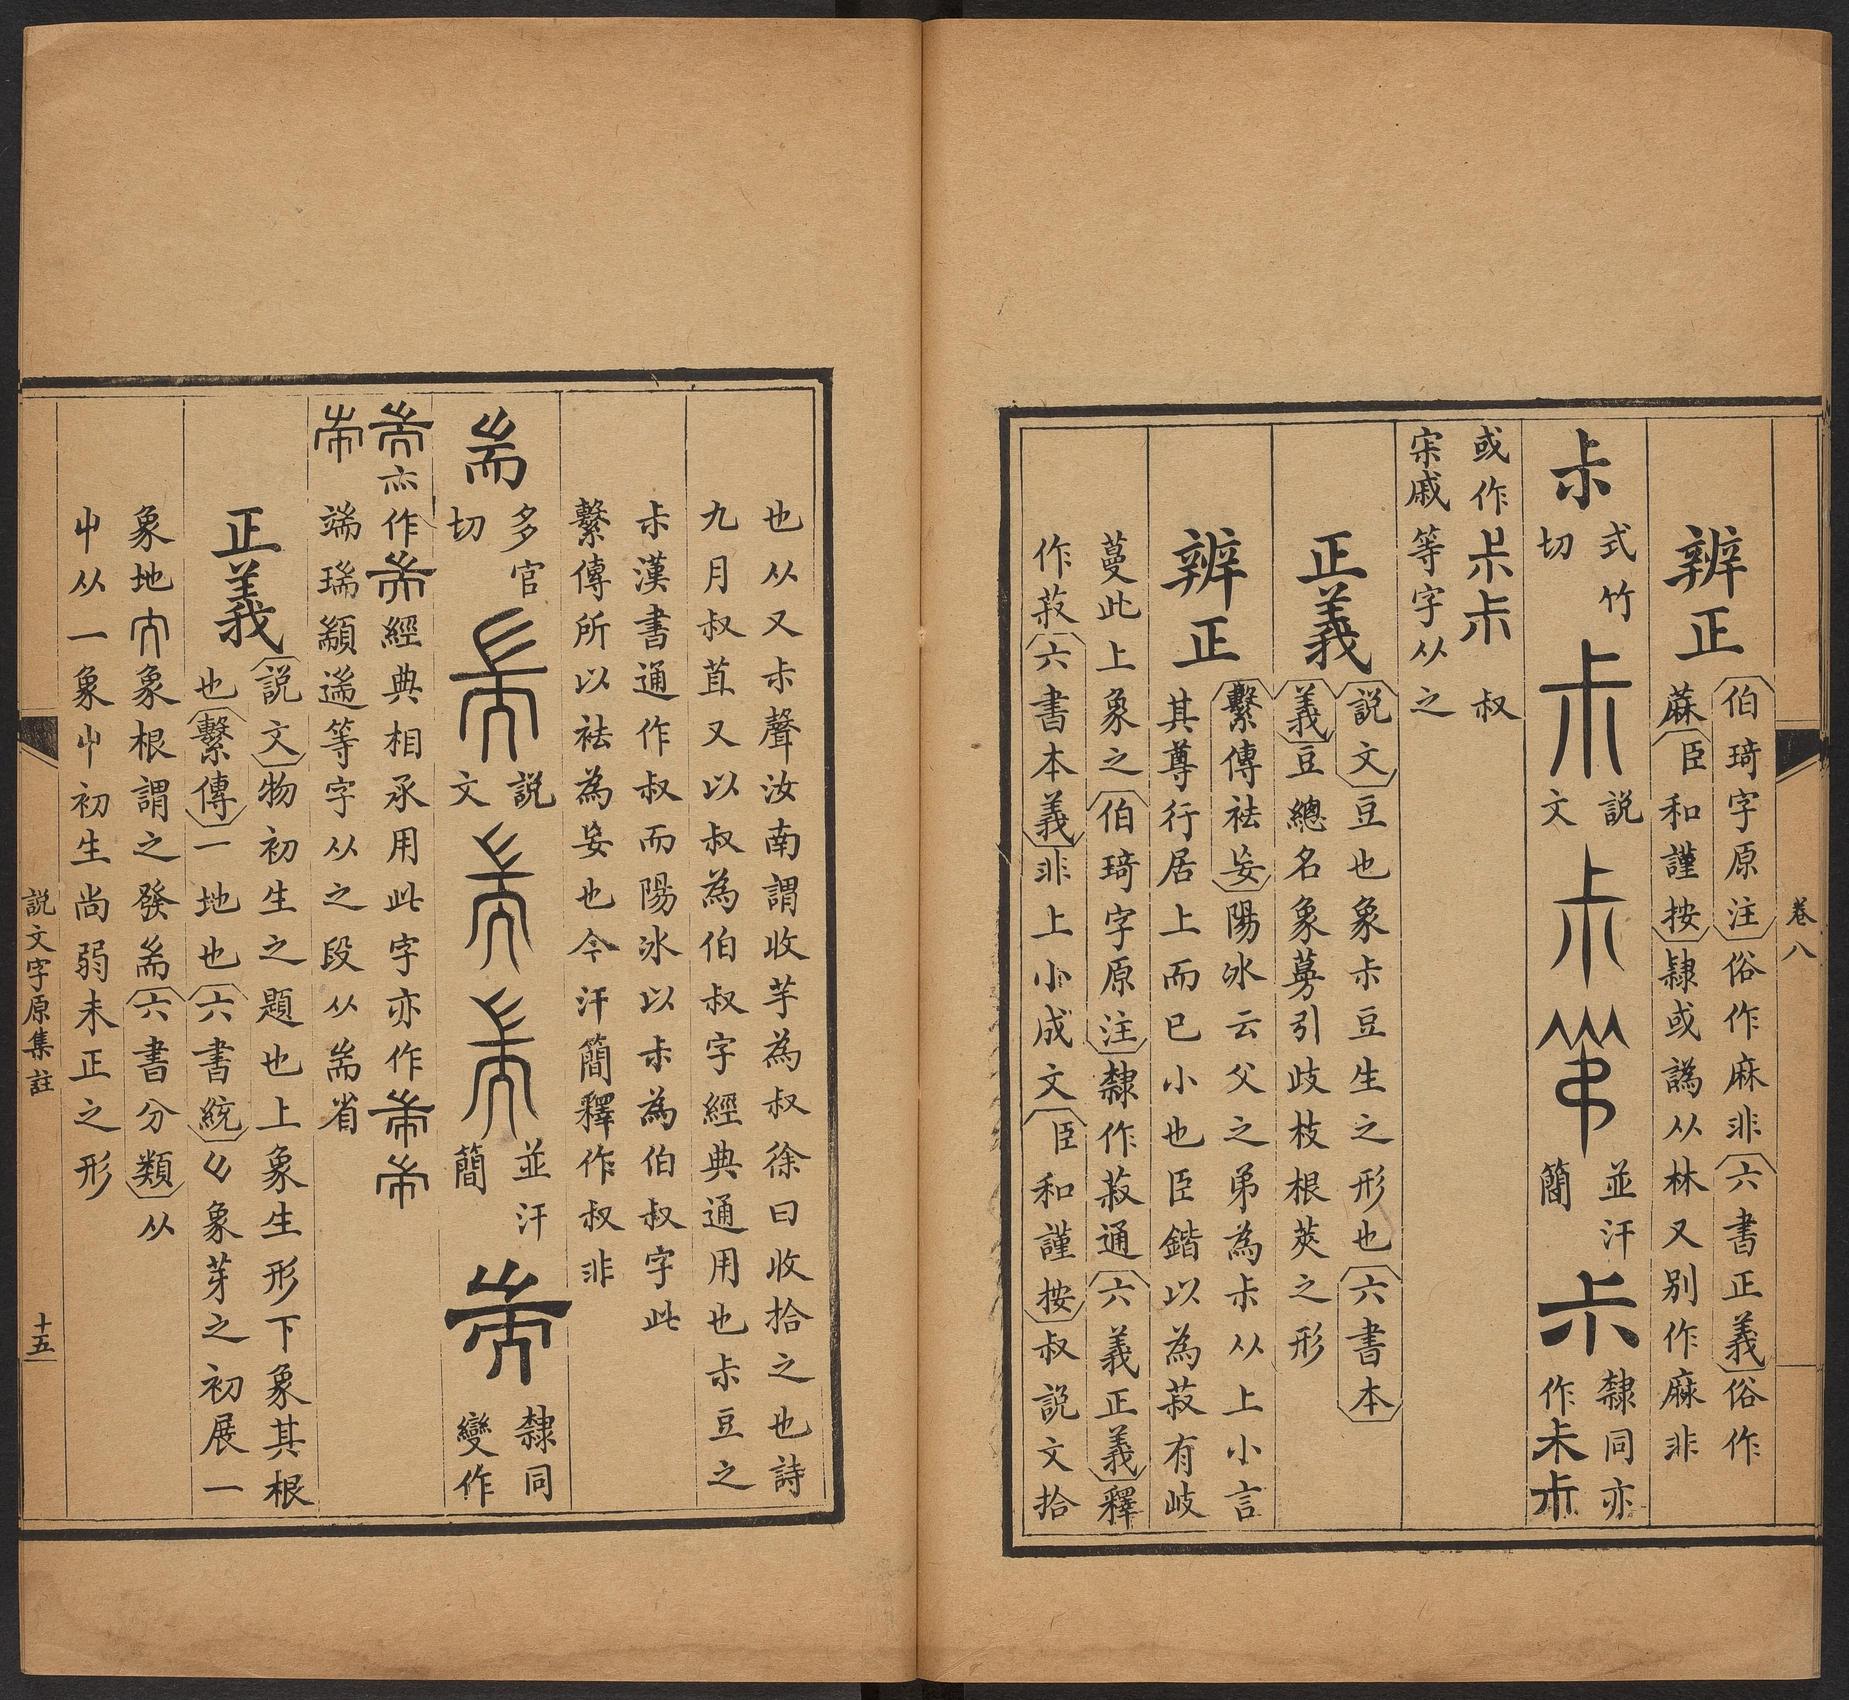 卷八
辨正
伯琦字原注俗作麻非六書正義俗作
蔴臣和謹按隷或譌从林又别作麻非
尗
式竹
切
説
文
並汗
簡
隸同亦
作
或作 叔
宋戚等字从之
正義
説文豆也象尗豆生之形也六書本
義豆總名象蔓引歧枝根莢之形
辨正
繫傳袪妄陽冰云父之弟為尗从上小言
其尊行居上而已小也臣鍇以為菽有岐
蔓此上象之伯琦字原注隸作菽通六義正義釋
作菽六書本義非上小成文臣和謹按叔説文拾
也从又尗聲汝南謂收芋為叔徐曰收拾之也詩
九月叔苴又以叔為伯叔字經典通用也尗豆之
尗漢書通作叔而陽冰以尗為伯叔字此
繫傳所以袪為妄也今汗簡釋作叔非
耑
多官
切
説
文
並汗
簡
隸同
變作
亦作經典相承用此字亦作
端瑞顓遄等字从之段从耑省
正義
説文物初生之題也上象生形下象其根
也繫傳一地也六書統象芽之初展一
象地象根謂之發耑六書分類从
屮从一象屮初生尚弱未正之形
説文字原集註
十五